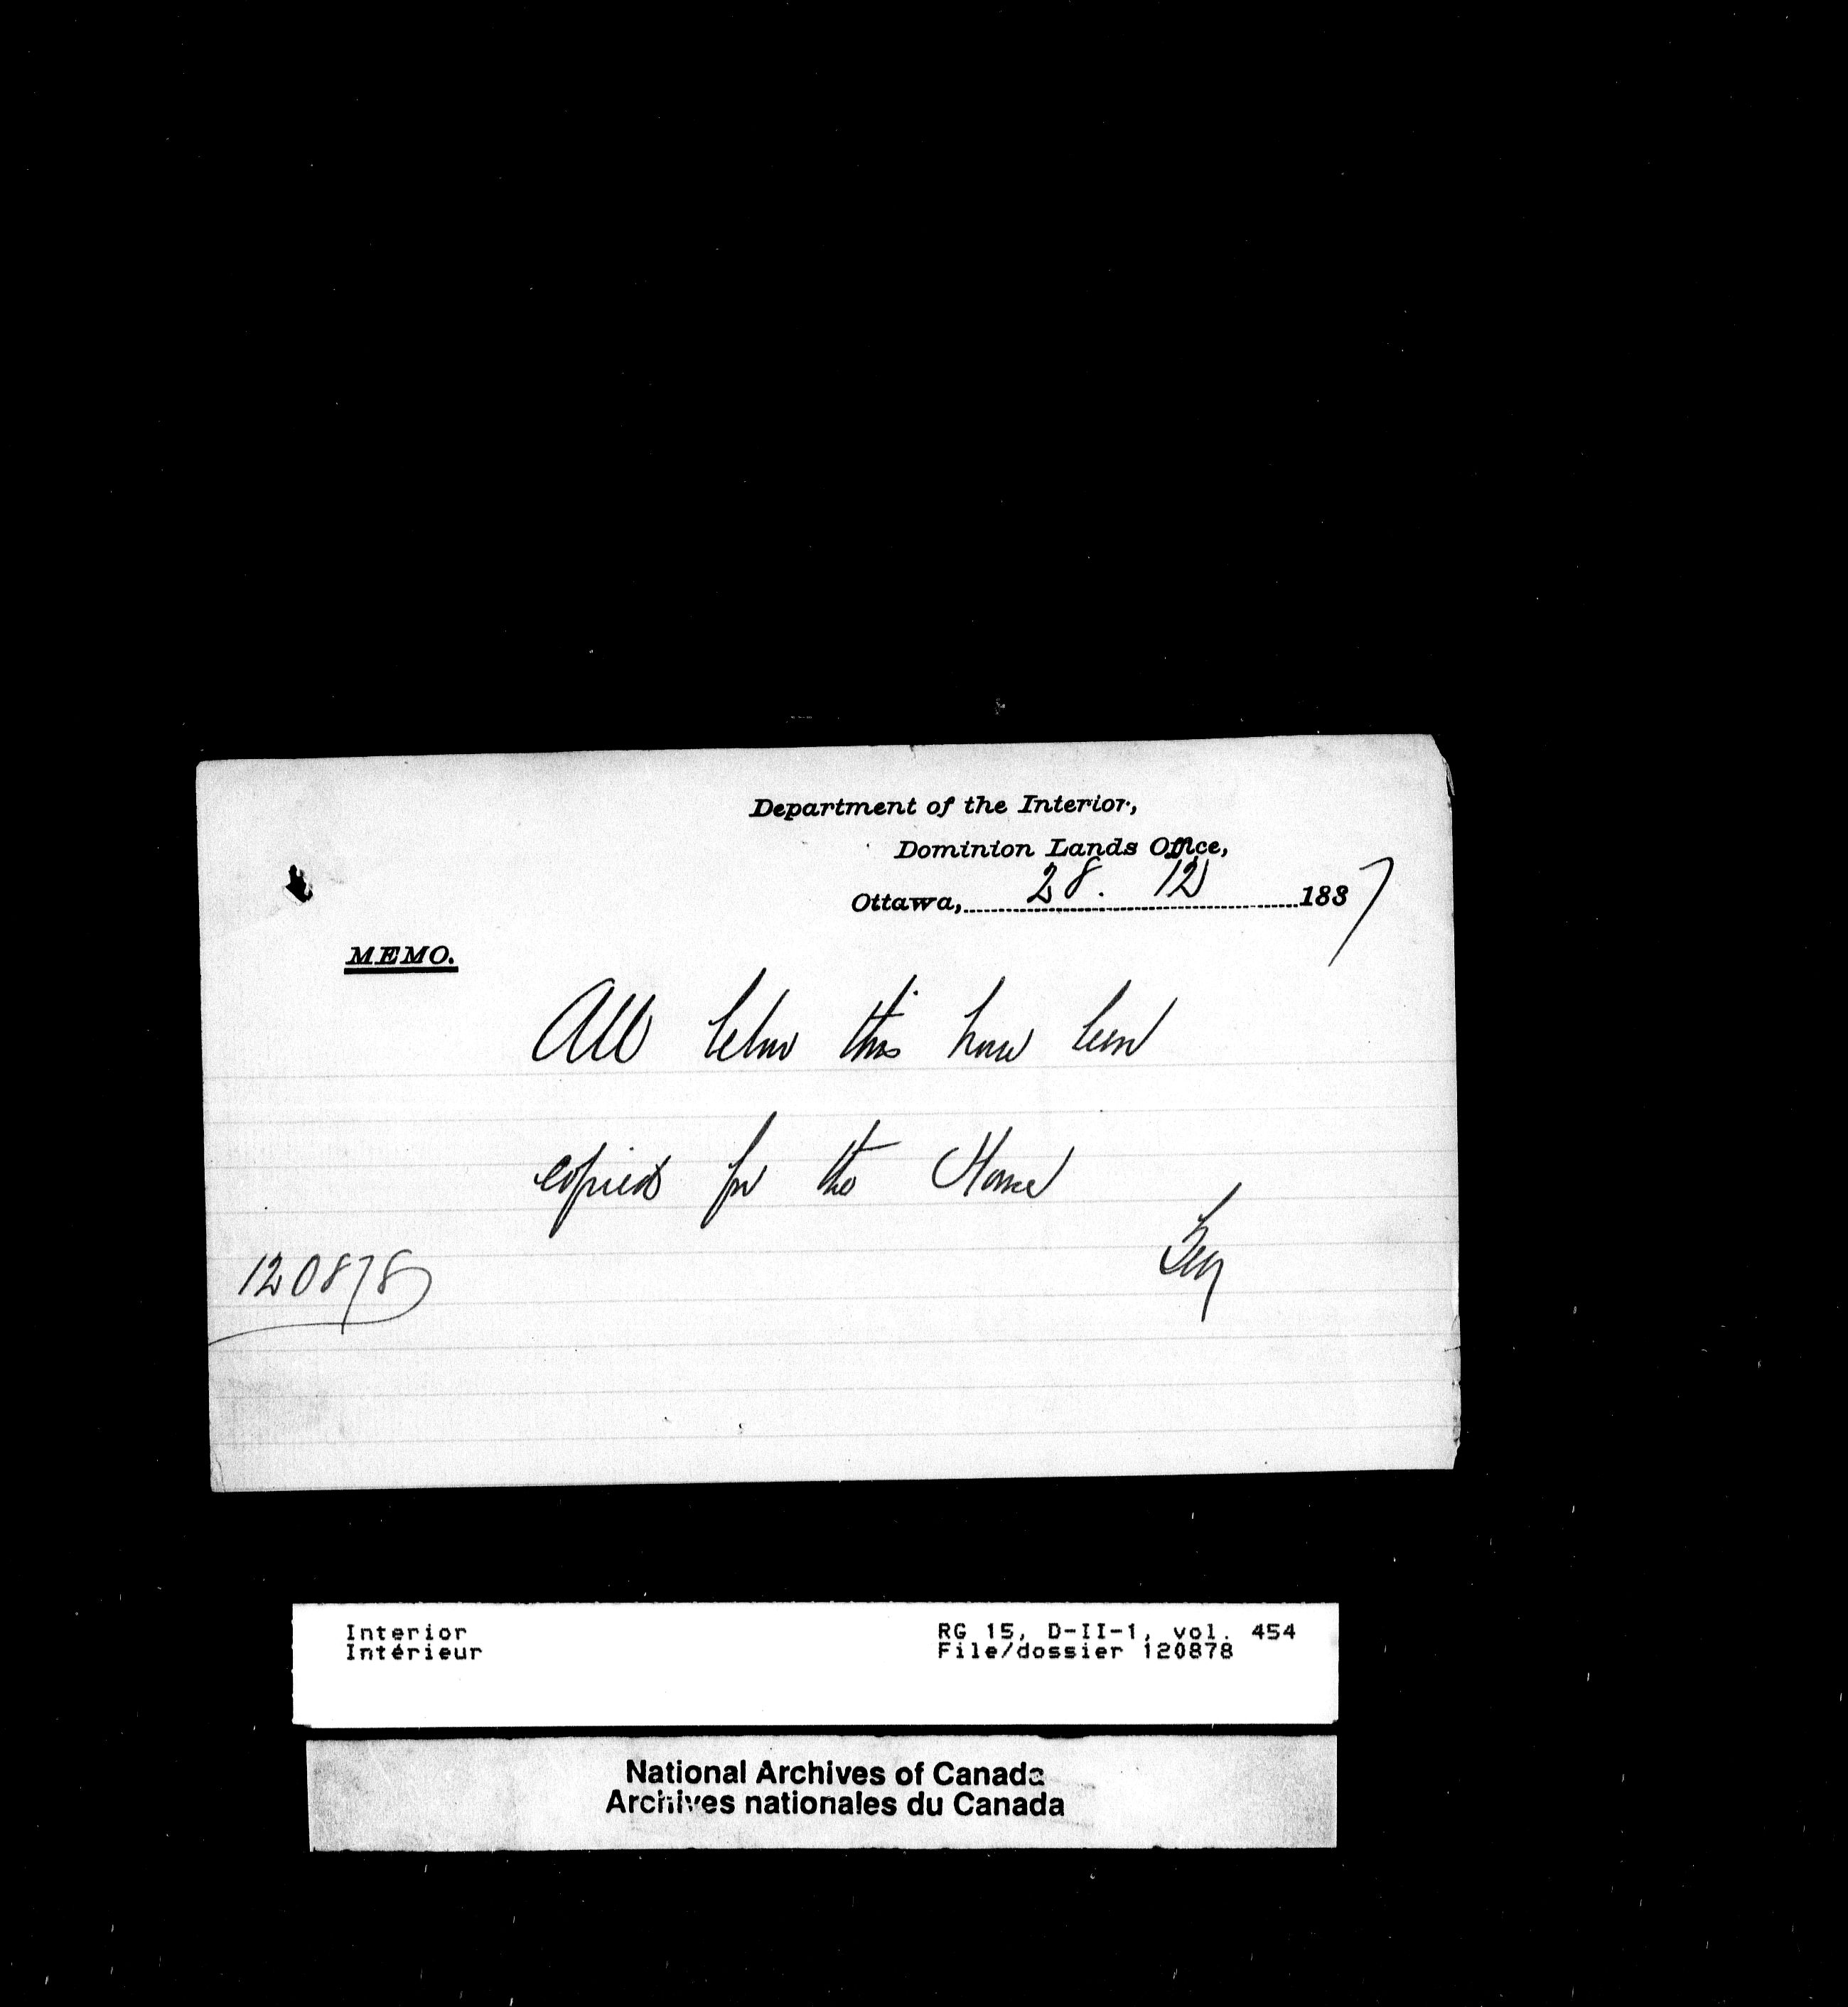 Department of the Interior,
Dominion Lands Office,
Ottawa, 28. 12 1887
MEMO.
All below this have been
copied for the House
120878
Interior
Intérieur
RG 15, D-II-1, vol. 454
File/dossier 120878
National Archives of Canada
Archives nationales du Canada